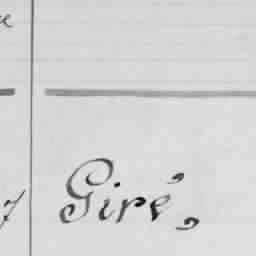 Giré,